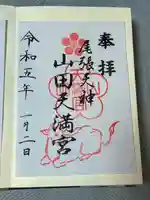 奉拝
尾張天神
山田天満宮
令和五年 一月二日